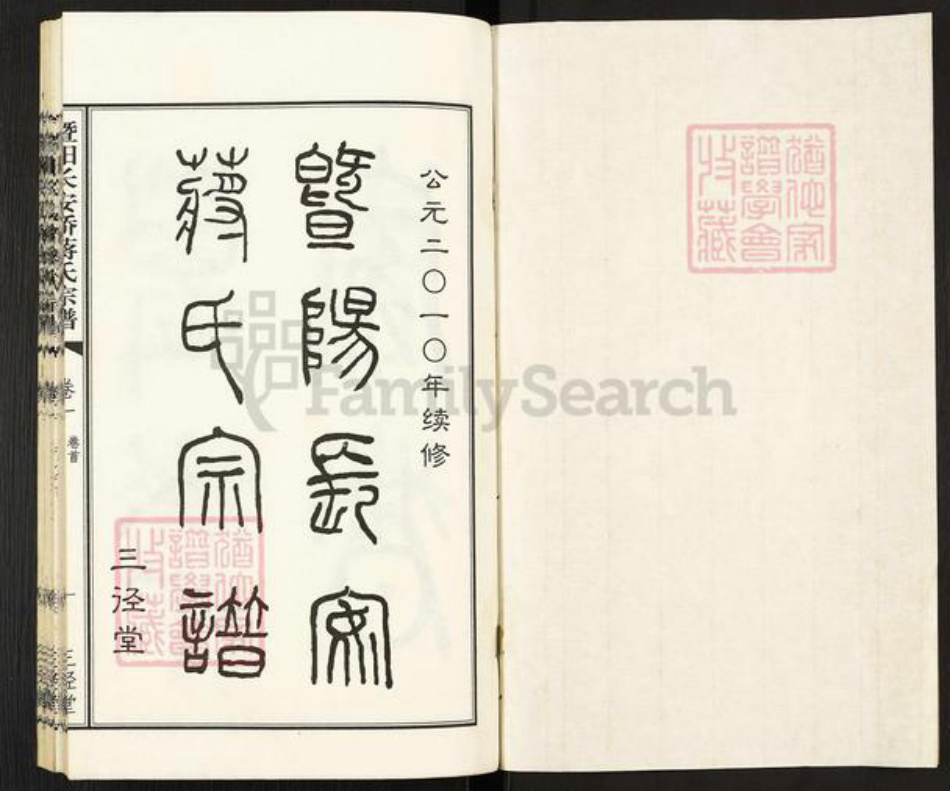 猶他家
譜學會
收藏
公元二〇一〇年续修
暨陽長安
蔣氏宗譜
三径堂
猶他家
譜學會
收藏
暨阳长安桥蒋氏宗谱
卷一
卷首
一
三径堂
FamilySearch